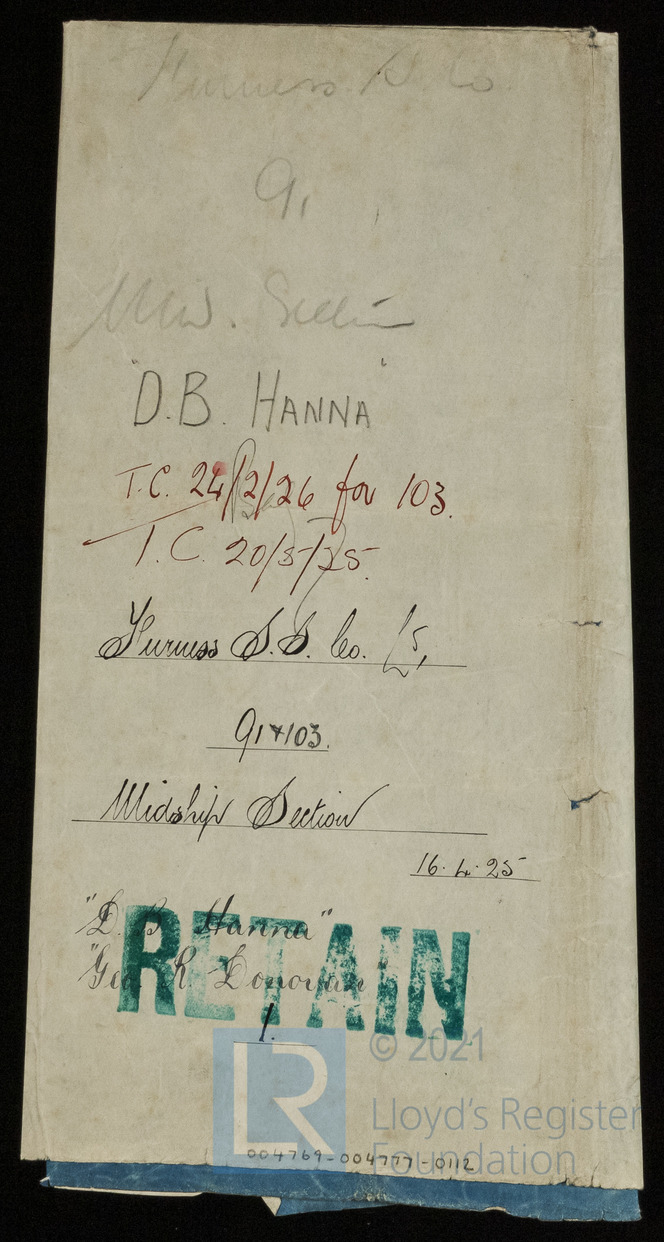 Furness S. Co
91
Mid. Section
"D.B. HANNA"
T.C. 24/2/26 for 103.
T.C. 20/5/25.
Furness S.B. Co. Ld,
91 & 103.
Midship Section
16.4.25
"D. B. Hanna"
"Geo. R. Donovan"
RETAIN
1.
LR
© 2021
Lloyd's Register
Foundation
004769-004777-0112